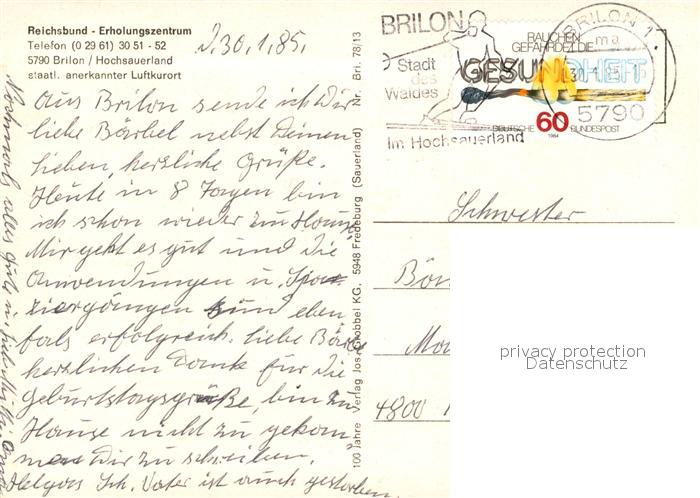 Reichsbund - Erholungszentrum
Telefon (0 29 61) 30 51 - 52
5790 Brilon / Hochsauerland
staatl. anerkannter Luftkurort
d. 30.1.85.
Aus Brilon sende ich Dir
liebe Bärbel nebst Deinen
Lieben, herzliche Grüße.
Heute in 8 Tagen bin
ich schon wieder zu Hause
Mir geht es gut und die
Anwendungen u. Spa-
ziergängen sind eben
falls erfolgreich. Liebe Bärbel
herzlichen Dank für die
Geburtstagsgrüße, bin zu
Hause nicht zu gekom
men Dir zu schreiben.
Helgas Sch. Vater ist auch gestorben.
Nochmals alles Gute
100 Jahre Verlag Jos. Grobbel KG, 5948 Fredeburg (Sauerland) Nr. Bri. 78/13
BRILON
Stadt
des
Waldes
Im Hochsauerland
RAUCHEN
GEFÄHRDET DIE
GESUNDHEIT
DEUTSCHE 60 BUNDESPOST
1984
BRILON 1
ma
5790
Schwester
4800
privacy protection
Datenschutz